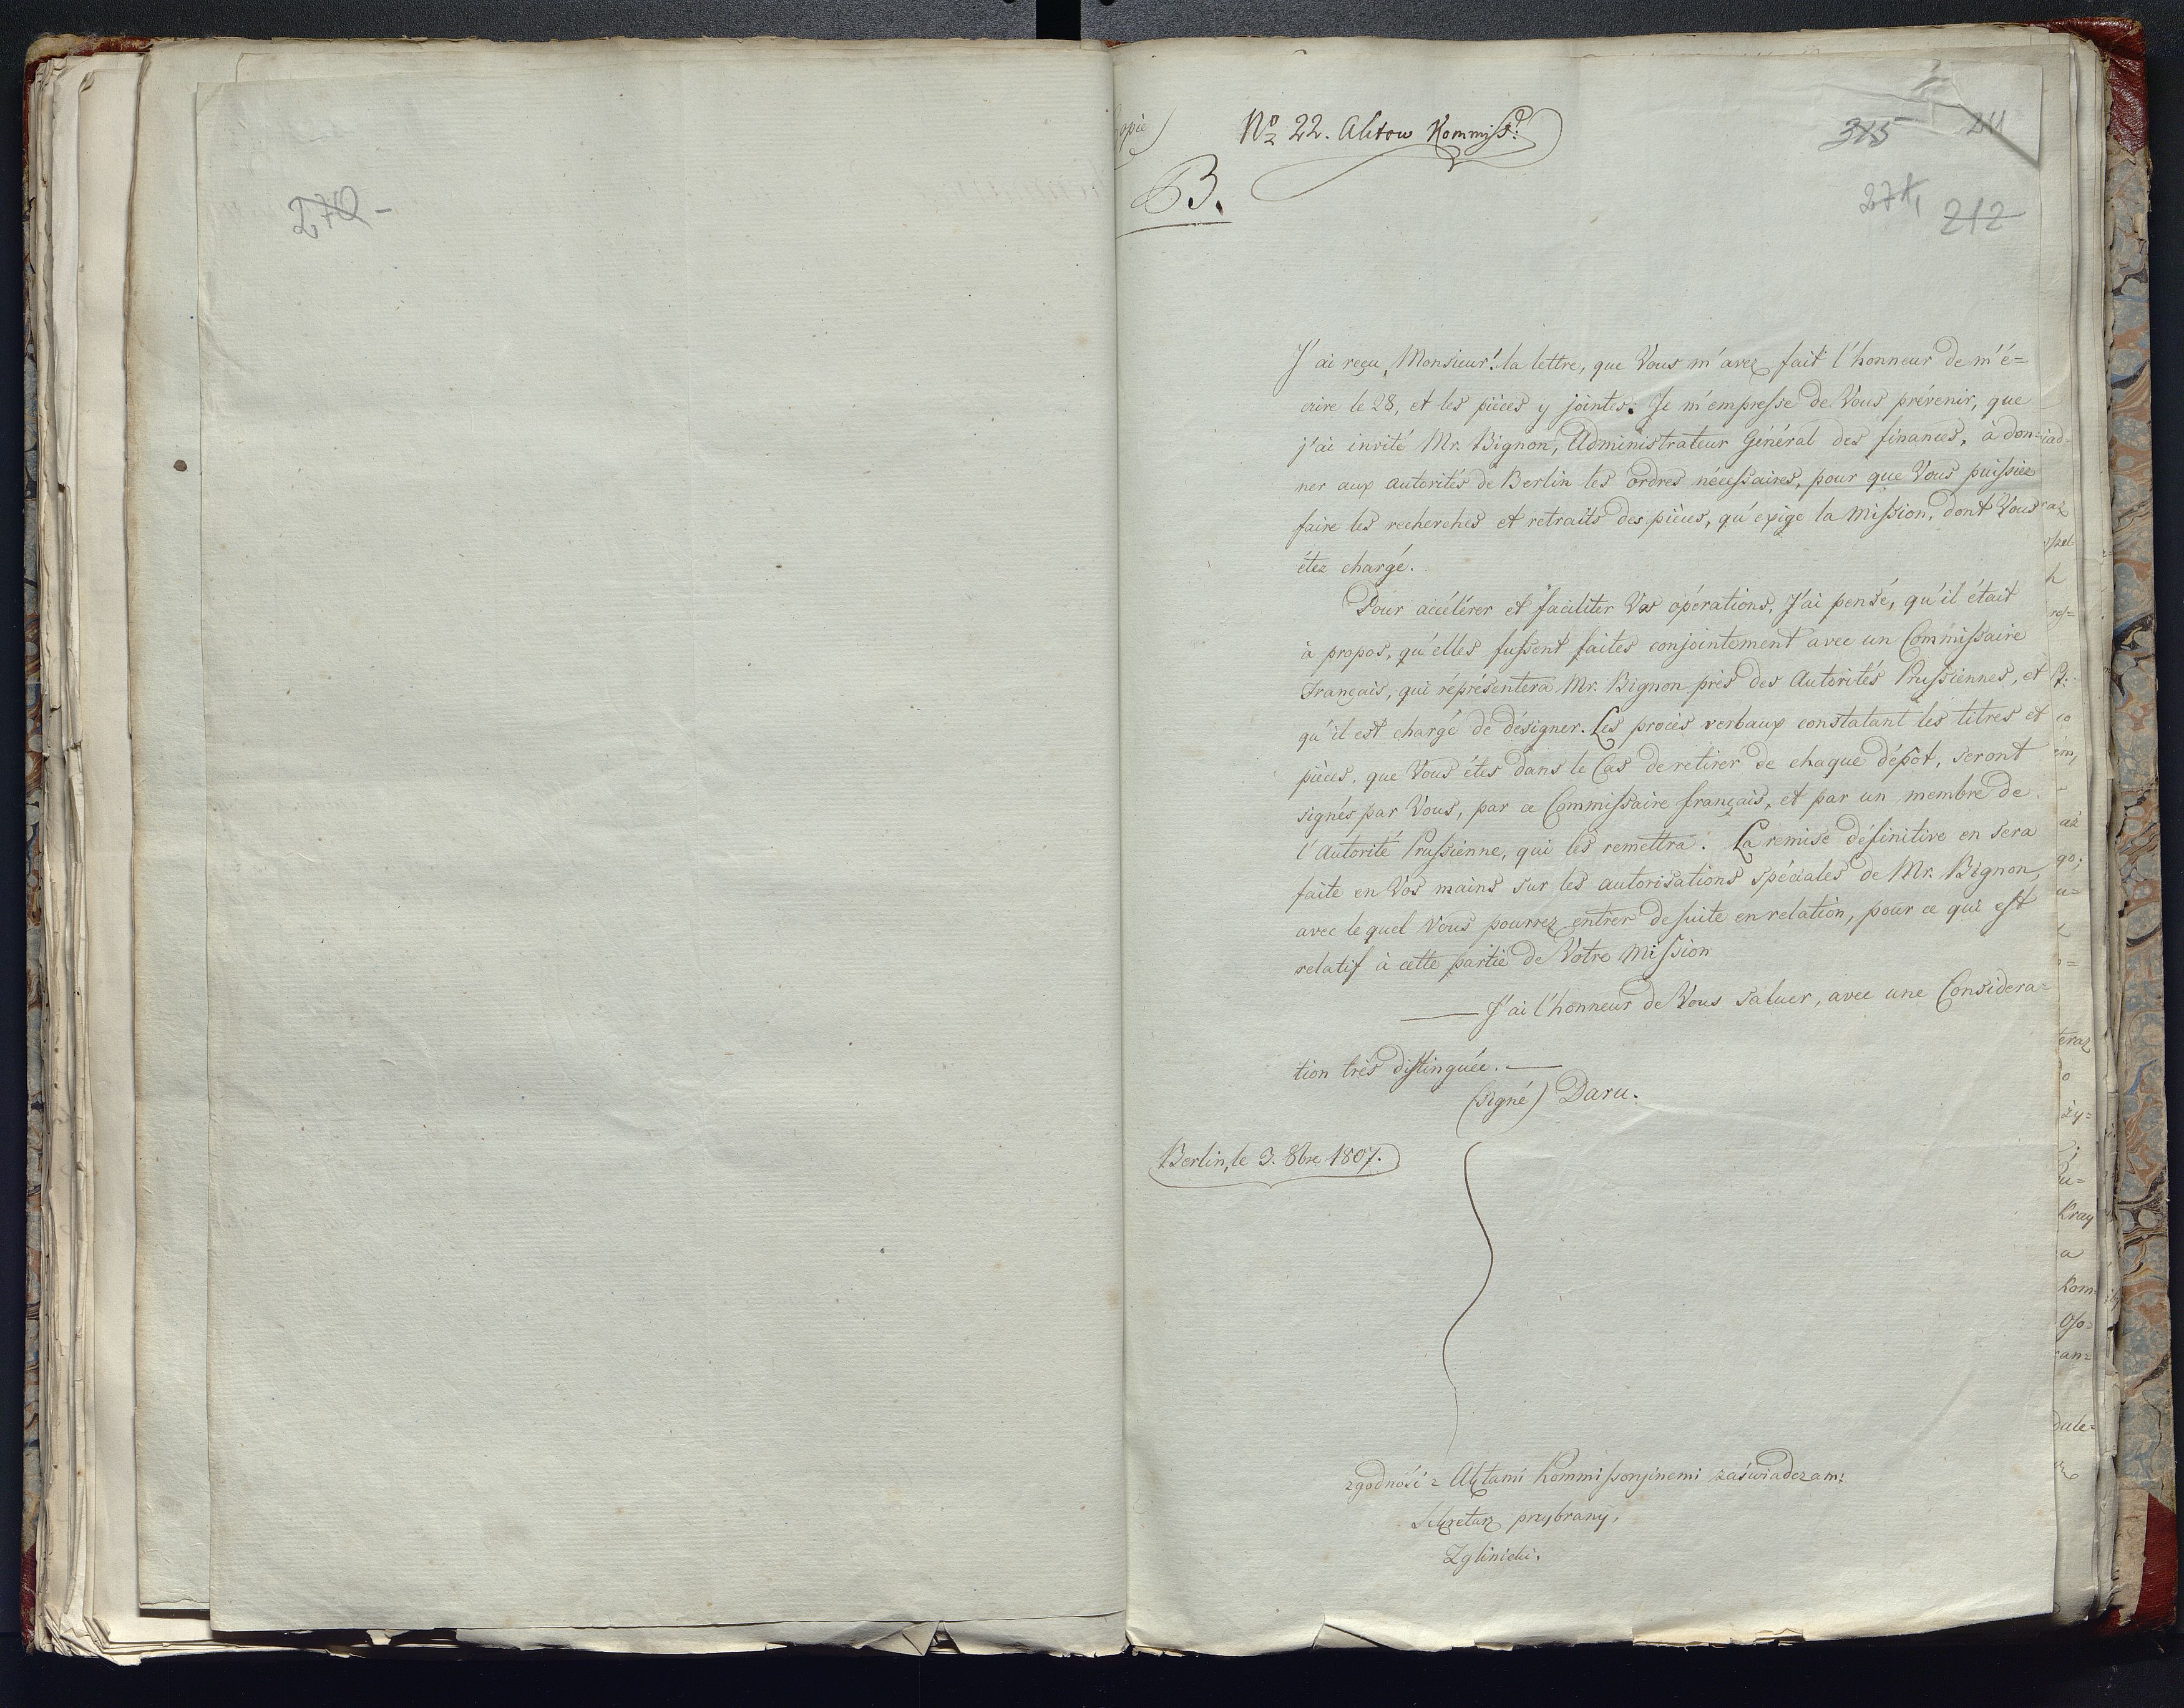 270 -
opie)
No 22. Aktow Kommiss:
B.
315 211
271, 212
J'ai reçu, Monsieur! la lettre, que Vous m'avez fait l'honneur de m'é=
crire le 28, et les pièces y jointes. Je m'empresse de Vous prévenir, que
j'ai invité Mr. Bignon, Administrateur Général des finances, à don=
ner aux autorités de Berlin les ordres nécessaires, pour que Vous puissiez
faire les recherches et retraits des pièces, qu'exige la Mission, dont Vous
étez chargé.
Pour accélérer et faciliter Vos opérations, J'ai pensé, qu'il était
à propos, qu'elles fussent faites conjointement avec un Commissaire
Français, qui réprésentera Mr. Bignon près des Autorités Prussiennes, et
qu'il est chargé de désigner. Les procès verbaux constatant les titres et
pièces, que Vous étes dans le Cas de retirer de chaque dépôt, seront
signés par Vous, par ce Commissaire français, et par un membre de
l'Autorité Prussienne, qui les remettra. La remise définitive en sera
faite en Vos mains sur les autorisations spéciales de Mr. Bignon,
avec lequel Vous pourrez entrer de suite en relation, pour ce qui est
relatif à cette partie de Votre Mission
J'ai l'honneur de Vous saluer, avec une Considera=
tion très distinguée.
(signé) Daru.
Berlin, le 3. 8bre 1807.
zgodność z Aktami Kommissyjnemi zaświadczam:
Sekretarz przybrany,
Zglinicki.